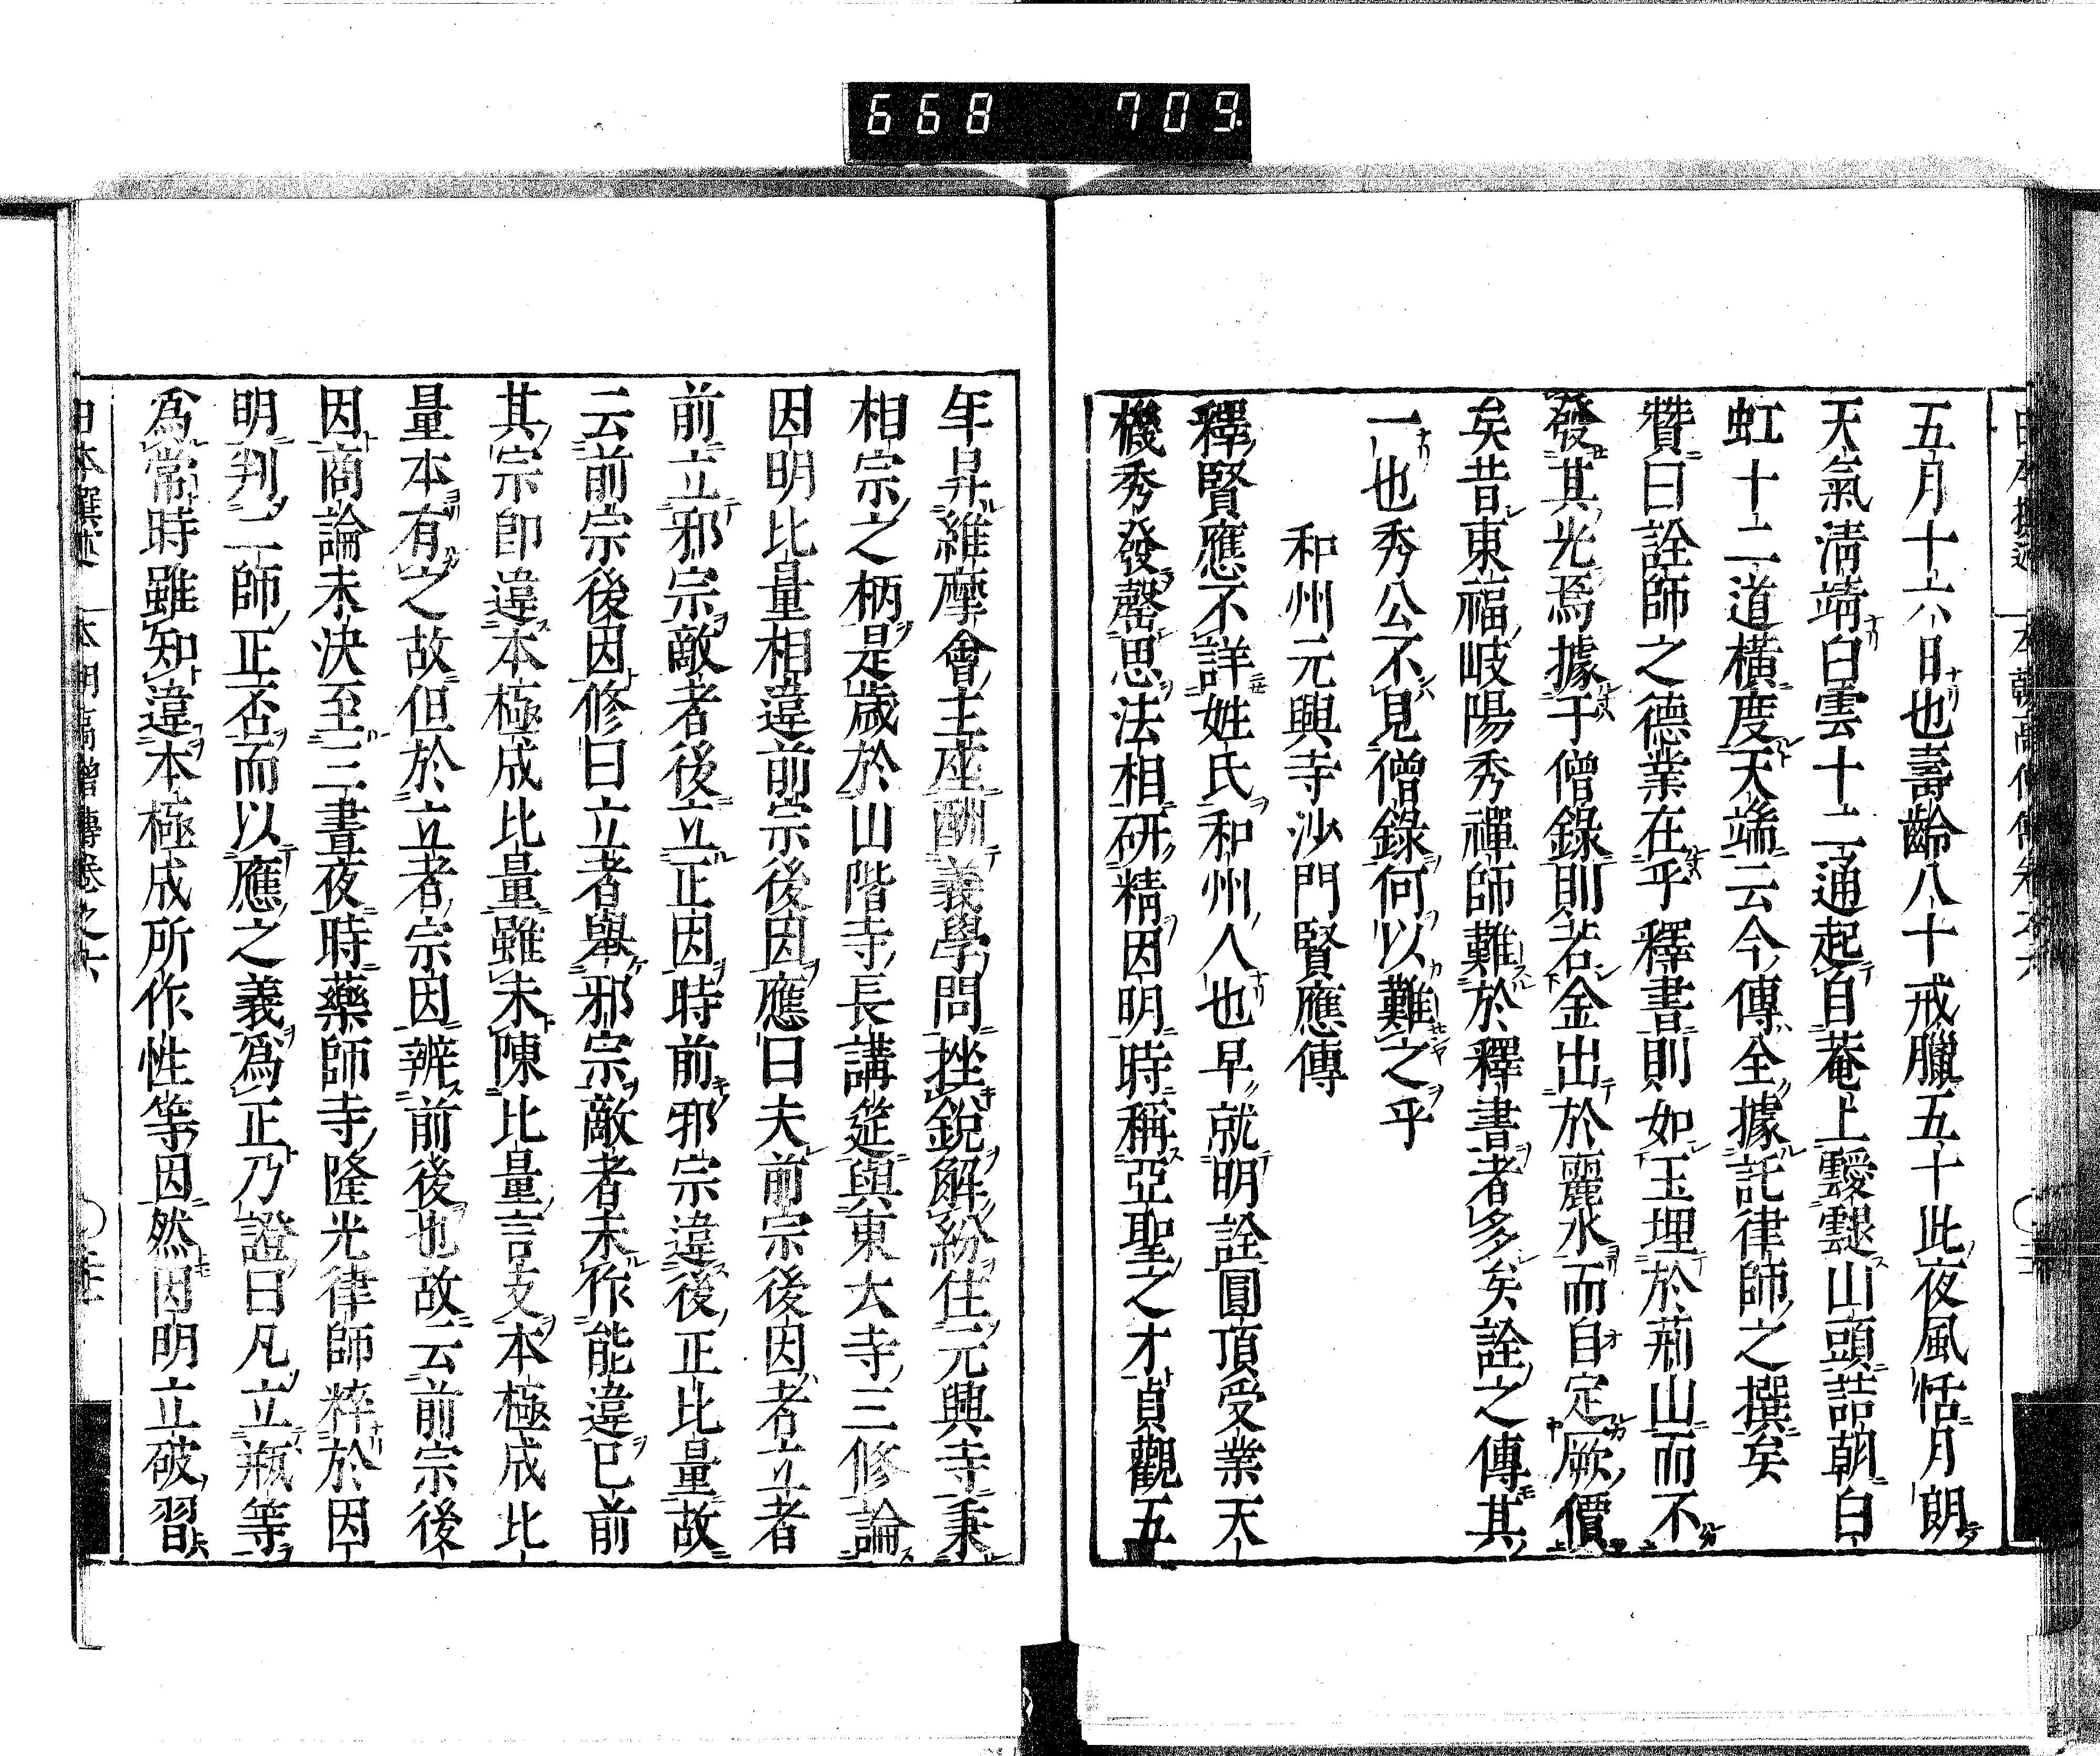 668 709
五月十六日也壽齡八十戒臘五十此夜風恬月朗
天氣清靖白雲十二通起自菴上靉靆山頭詰朝白
虹十二道橫度天端云今傳全據託律師之撰矣
贊曰詮師之德業在乎釋書則如玉埋於荊山而不
發其光焉據于僧錄則若金出於麗水而自定厥價
矣昔東福岐陽秀禪師難於釋書者多矣詮之傳其
一也秀公不見僧錄何以難之乎
和州元興寺沙門賢應傳
釋賢應不詳姓氏和州人也早就明詮圓頂受業天
機秀發罄思法相研精因明時稱亞聖之才貞觀五
年昇維摩會主座酬義學問挫銳解紛住元興寺秉
相宗之柄是歲於山階寺長講筵與東大寺三修論
因明比量相違前宗後因應曰夫前宗後因者立者
前立邪宗敵者後立正因時前邪宗違後正比量故
云前宗後因修曰立者舉邪宗敵者未作能違已前
其宗卽違本極成比量雖未陳比量言支本極成比
量本有之故但於立者宗因辨前後也故云前宗後
因商論未決至三晝夜時藥師寺隆光律師粹於因
明判二師正否而以應之義爲正乃證曰凡立瓶等
爲常時雖知違本極成所作性等因然因明立破習
日本撰述 本朝高僧傳卷之六